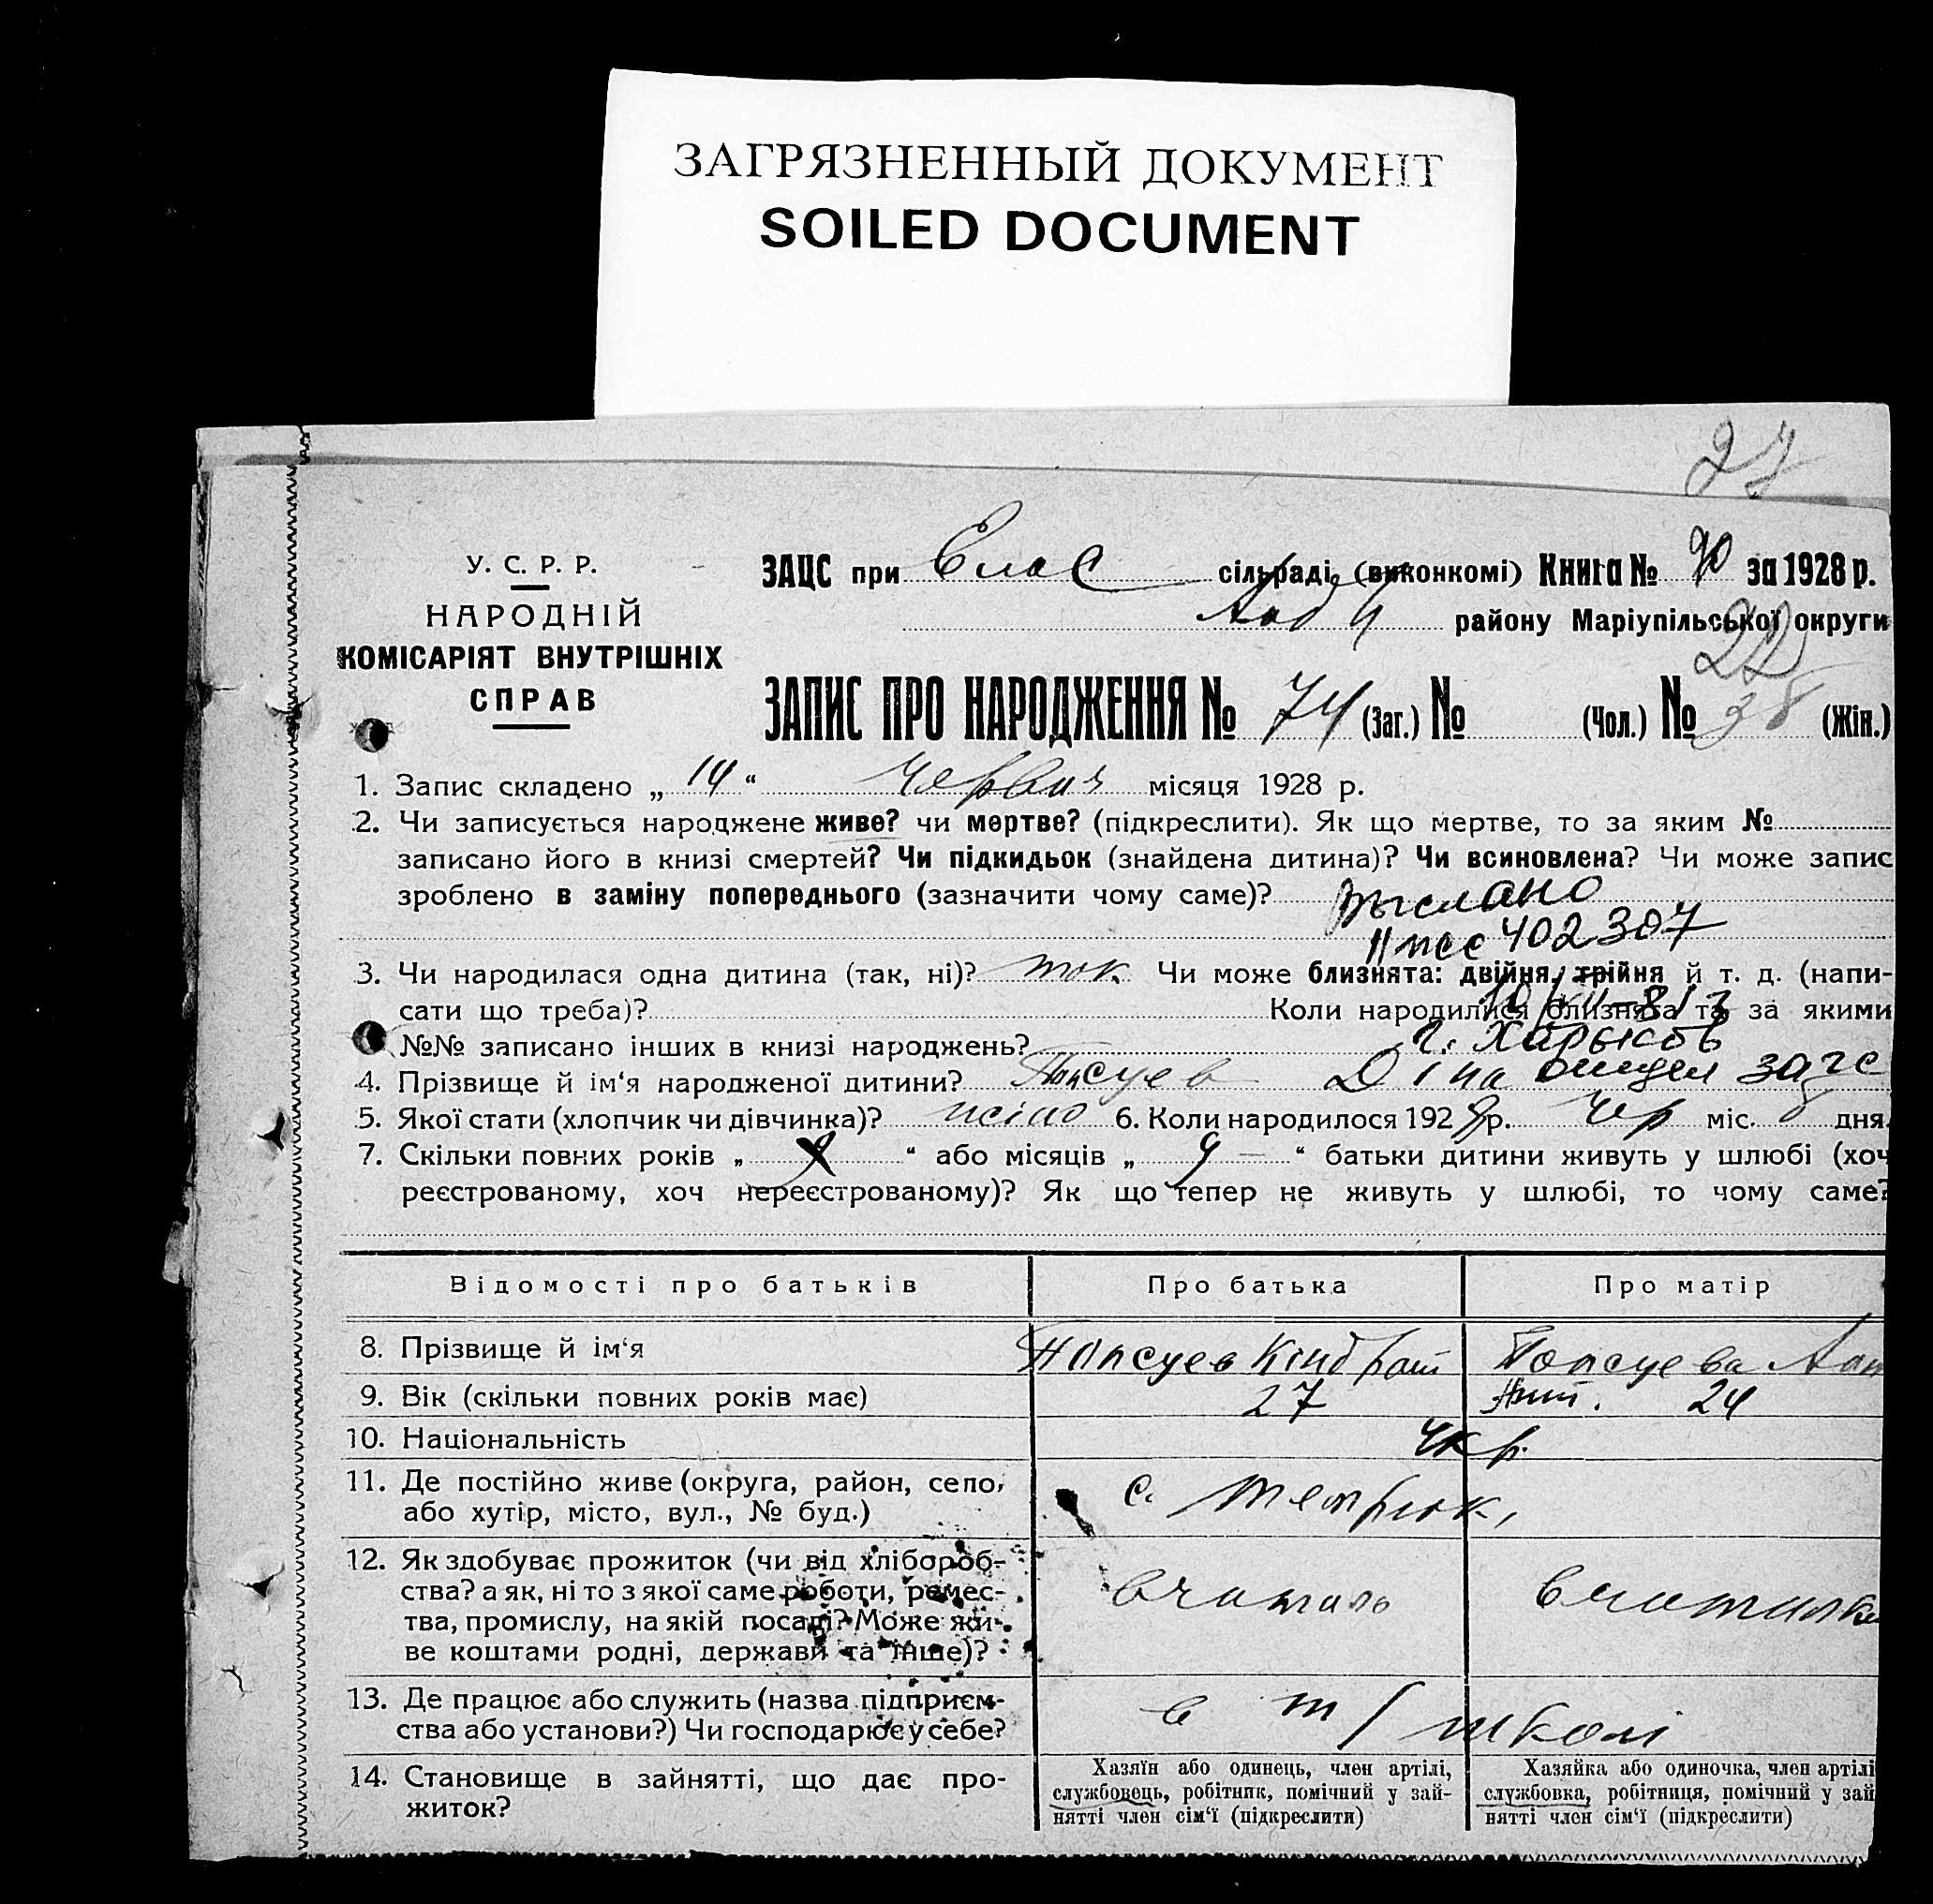 ЗАГРЯЗНЕННЫЙ ДОКУМЕНТ
SOILED DOCUMENT
27
У. С. Р. Р.
НАРОДНІЙ
КОМІСАРІЯТ ВНУТРІШНІХ
СПРАВ
ЗАЦС при сільраді, (виконкомі) Книга № за 1928 р.
району Маріупільської округи
22
ЗАПИС ПРО НАРОДЖЕННЯ № 74 (Заг.) № (Чол.) № 38 (Жін.)
1. Запис складено „ 14 “ Червня місяця 1928 р.
2. Чи записується народжене живе? чи мертве? (підкреслити). Як що мертве, то за яким №
записано його в книзі смертей? Чи підкидьок (знайдена дитина)? Чи всиновлена? Чи може запис
зроблено в заміну попереднього (зазначити чому саме)? Выслано
402307
3. Чи народилася одна дитина (так, ні)? так Чи може близнята: двійня, трійня й т. д. (напи-
сати що треба)? Коли народилися близнята та за якими
г. Харьков
№№ записано інших в книзі народжень?
4. Прізвище й ім‘я народженої дитини? Діна загс
5. Якої стати (хлопчик чи дівчинка)? жіно 6. Коли народилося 1928 р. Чер міс. 8 дня.
7. Скільки повних років „ “ або місяців „ 9 “ батьки дитини живуть у шлюбі (хоч
реєстрованому, хоч нереєстрованому)? Як що тепер не живуть у шлюбі, то чому саме?
Відомості про батьків Про батька Про матір
8. Прізвище й ім‘я Папсуев Кіндрат Папсуева
9. Вік (скільки повних років має) 27 24
10. Національність Укр.
11. Де постійно живе (округа, район, село, с. Темрюк,
або хутір, місто, вул., № буд.)
12. Як здобуває прожиток (чи від хлібороб-
ства? а як, ні то з якої саме роботи, ремес- вчитиль вчитилка
тва, промислу, на якій посаді? Може жи-
ве коштами родні, держави та інше)?
13. Де працює або служить (назва підприєм- в т/школі
ства або установи?) Чи господарює у себе?
14. Становище в зайнятті, що дає про-
житок?
Хазяїн або одинець, член артілі,
службовець, робітник, помічний у зай-
нятті член сім‘ї (підкреслити)
Хазяйка або одиночка, член артілі
службовка, робітниця, помічний у зай
нятті член сім‘ї (підкреслити)